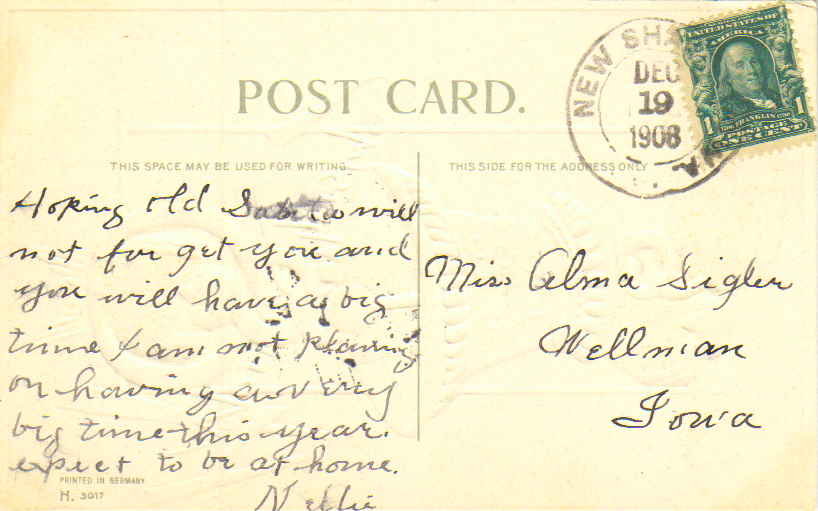 POST CARD.
NEW SHA
DEC
19
1908
UNITED STATES OF
AMERICA
FRANKLIN
1 1
POSTAGE
ONE CENT
THIS SPACE MAY BE USED FOR WRITING
Hoping old will
not for get you and
you will have a big
time I am not planing
on having a very
big time this year.
expect to be at home.
Nellie
PRINTED IN GERMANY
H. 3017
THIS SIDE FOR THE ADDRESS ONLY
Miss Alma Sigler
Wellman
Iowa